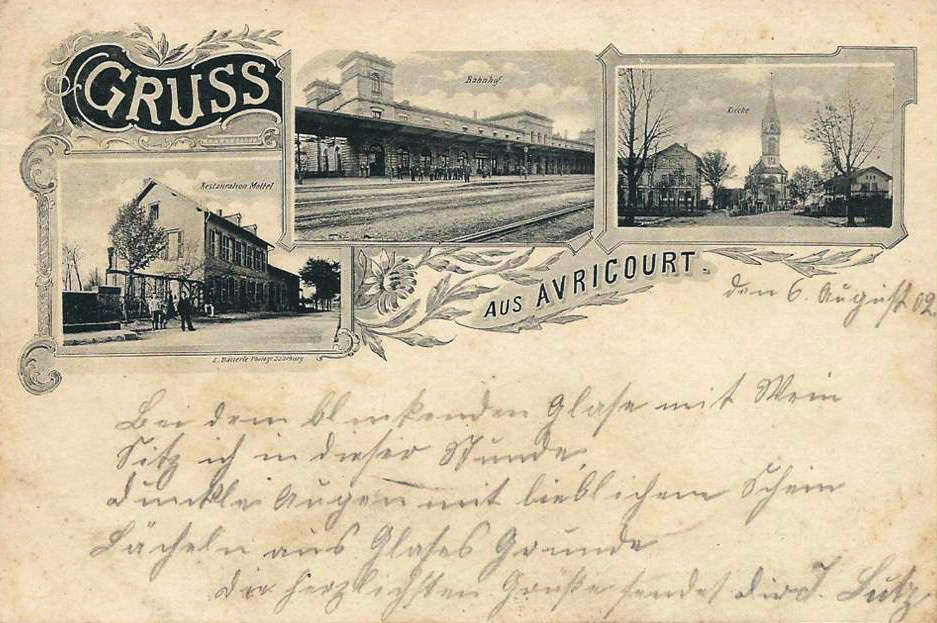 GRUSS
Bahnhof
Kirche
Restauration Mottet
AUS AVRICOURT.
den 6. August 02
Photogr. Saarburg
Bei dem blinkenden Glase mit Wein
Sitz ich in dieser Stunde,
dunkle Augen mit lieblichem Schein
Lächeln aus Glases Grunde
die herzlichsten Grüße sendet dir J. Lutz